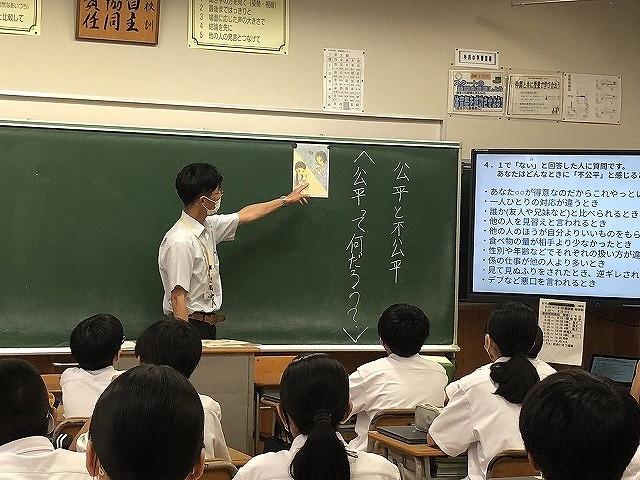 校訓
自主
協同
責任
2 最後まではっきりと
3 場面に応じた声の大きさで
4 結論を先に
5 他の人の発言とつなげて
公平と不公平
〈公平って何だろう？〉
4．1で「ない」と回答した人に質問です。
あなたはどんなときに「不公平」と感じる
・あなた○○が得意なのだからこれやっとい
・一人ひとりの対応が違うとき
・誰か(友人や兄妹など)と比べられるとき
・他の人を見習えと言われるとき
・他の人のほうが自分よりいいものをもら
・食べ物の量が相手より少なかったとき
・性別や年齢などでそれぞれの扱い方が違
・係の仕事が他の人より多いとき
・見て見ぬふりをされたとき、逆ギレされ
・デブなど悪口を言われるとき